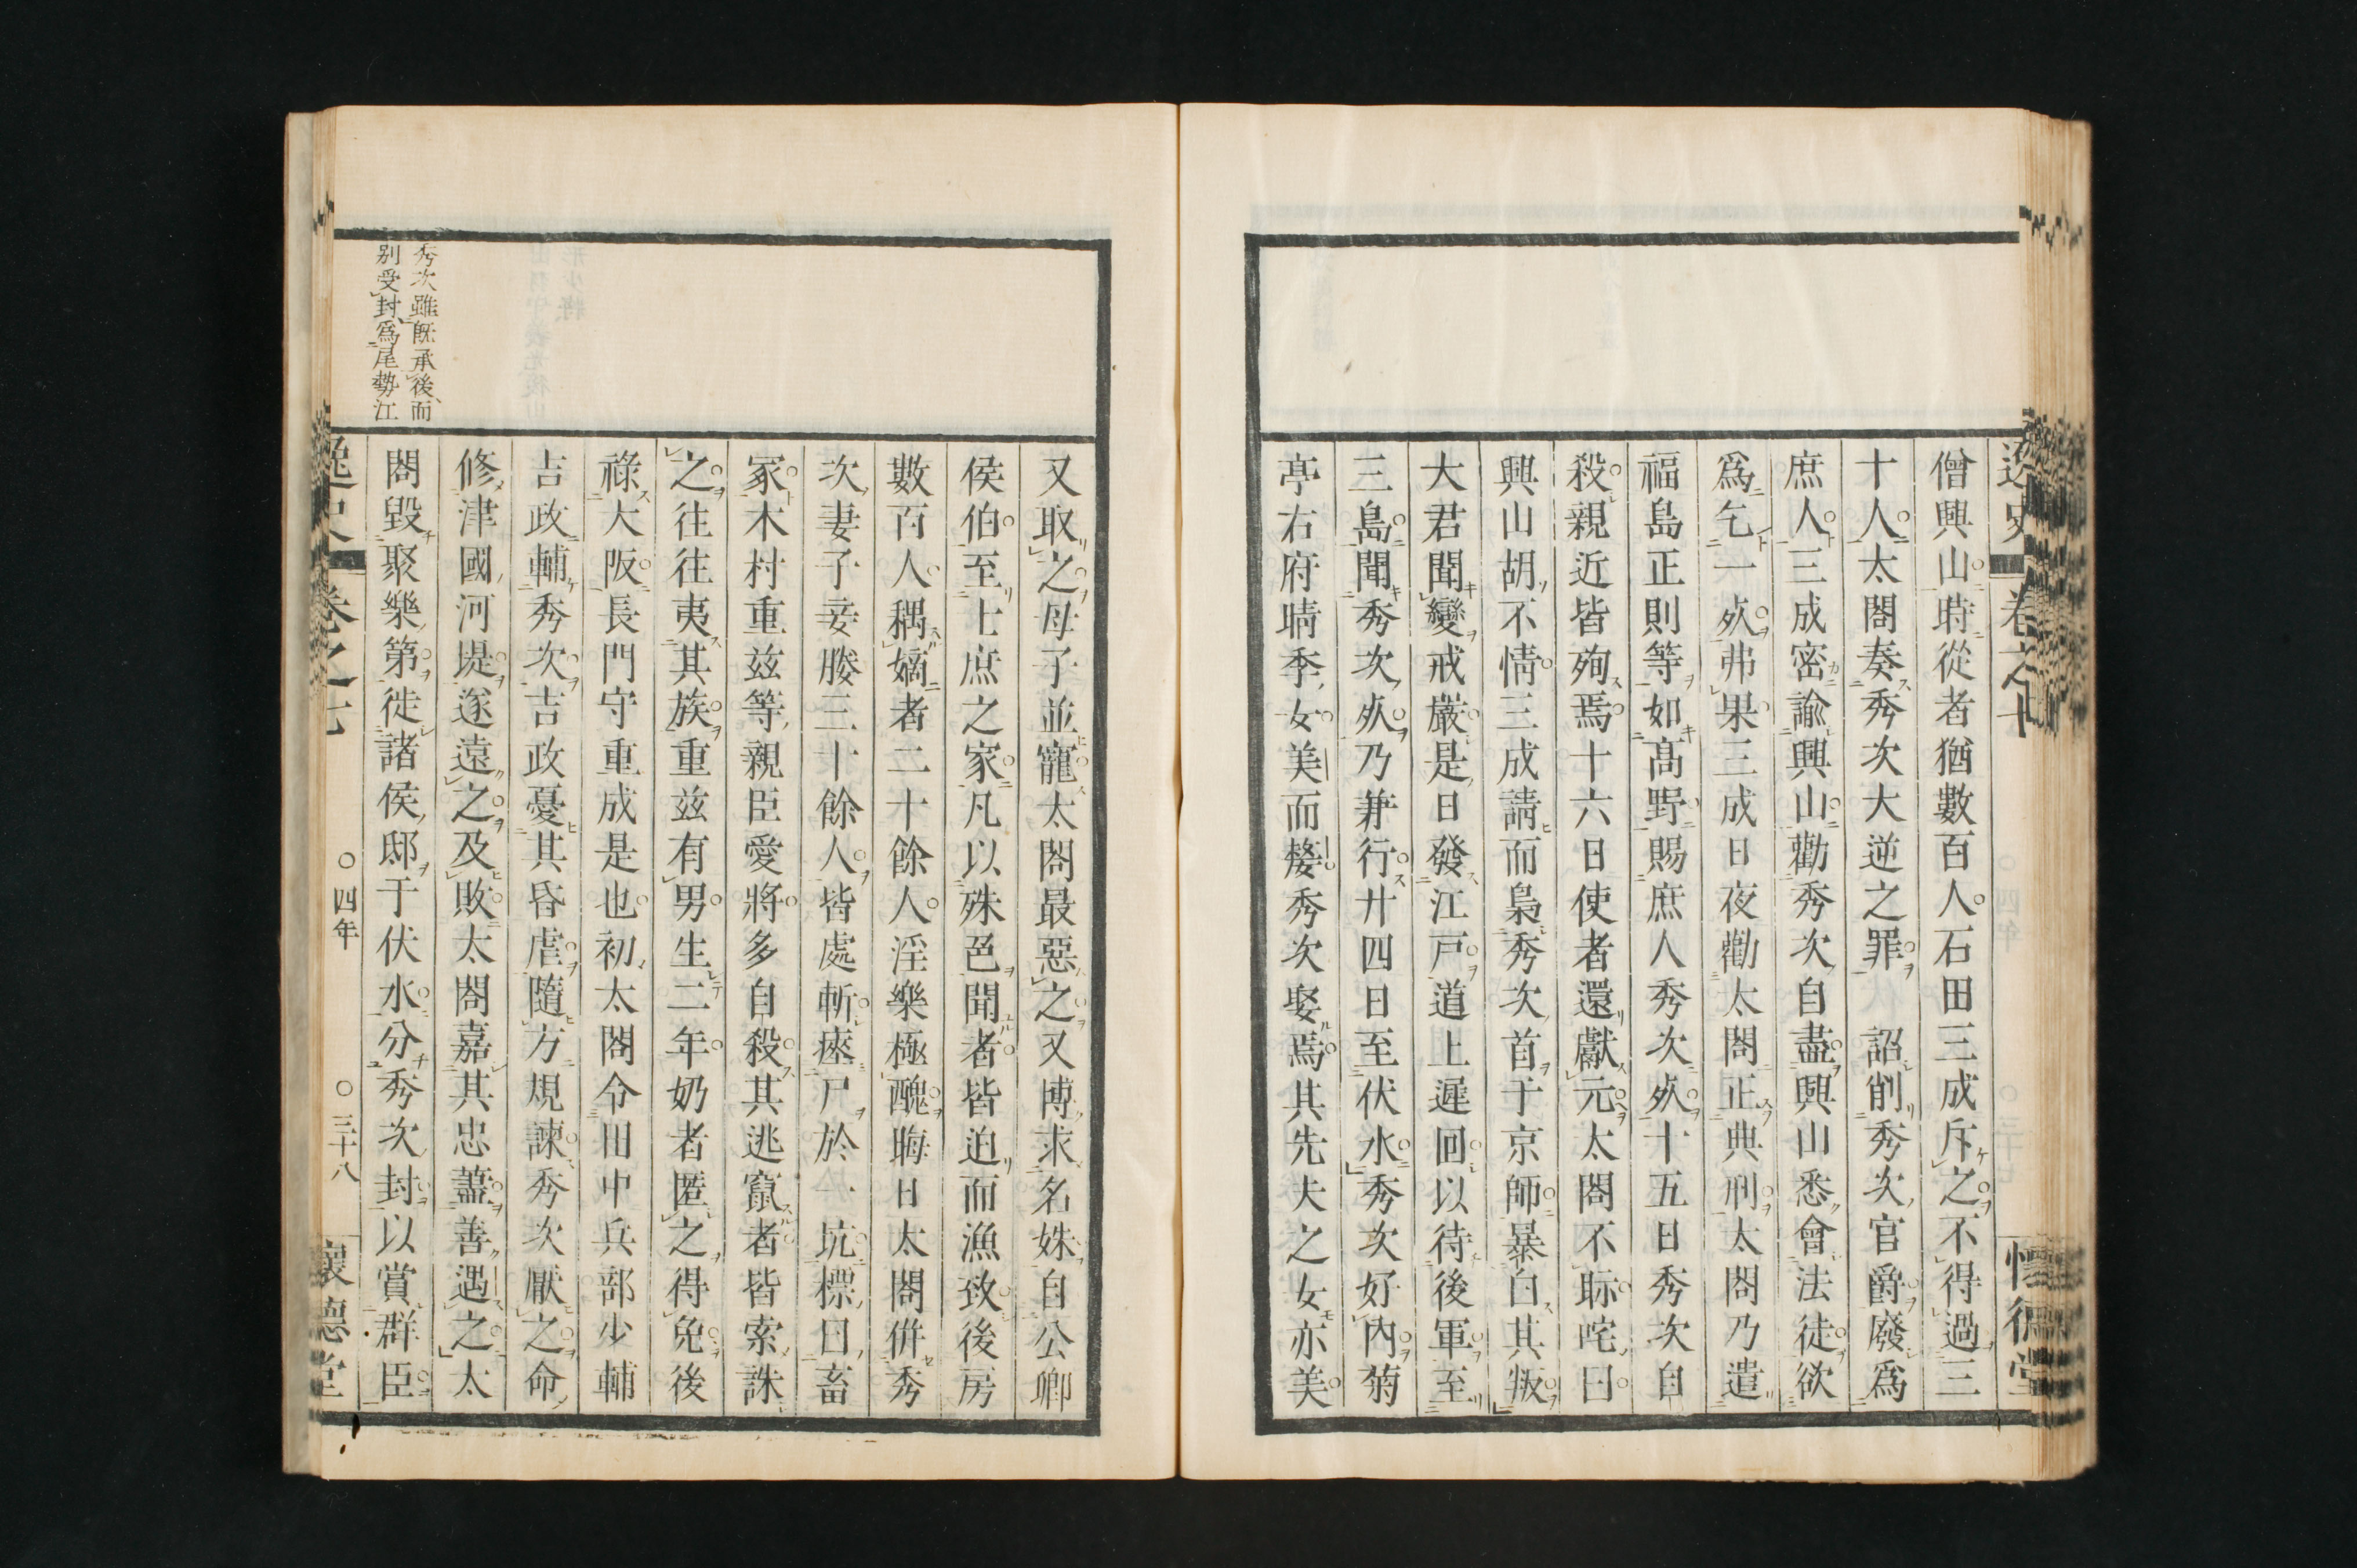 僧興山時從者猶數百人石田三成斥之不得過三
十人太閤奏秀次大逆之罪　詔削秀次官爵廢爲
庶人三成密諭興山勸秀次自盡興山悉會法徒欲
爲乞一㱙弗果三成日夜勸太閤正典刑太閤乃遣
福島正則等如髙野賜庶人秀次㱙十五日秀次自
殺親近皆殉焉十六日使者還獻元太閤不眎咤曰
興山胡不情三成請而梟秀次首于京師暴白其叛
大君聞變戒嚴是日發江戸道上遲回以待後軍至
三島聞秀次㱙乃兼行廿四日至伏水秀次好内菊
亭右府晴季女美而嫠秀次娶焉其先夫之女亦美
又取之母子並寵太閤最惡之又博求名姝自公卿
侯伯至士庶之家凡以殊色聞者皆迫而漁致後房
數百人稱嫡者二十餘人淫樂極醜晦日太閤併秀
次妻子妾媵三十餘人皆處斬瘞尸於一坑標曰畜
冢木村重茲等親臣愛將多自殺其逃竄者皆索誅
之往往夷其族重茲有男生二年奶者匿之得免後
祿大阪長門守重成是也初太閤令田中兵部少輔
吉政輔秀次吉政憂其昏虐隨方規諫秀次厭之命
修津國河堤遂遠之及敗太閤嘉其忠藎善遇之太
閤毀聚樂第徙諸侯邸于伏水分秀次封以賞群臣
秀次雖旣承後而
别受封爲尾勢江
逸史
卷之七
四年
三十八
懷德堂